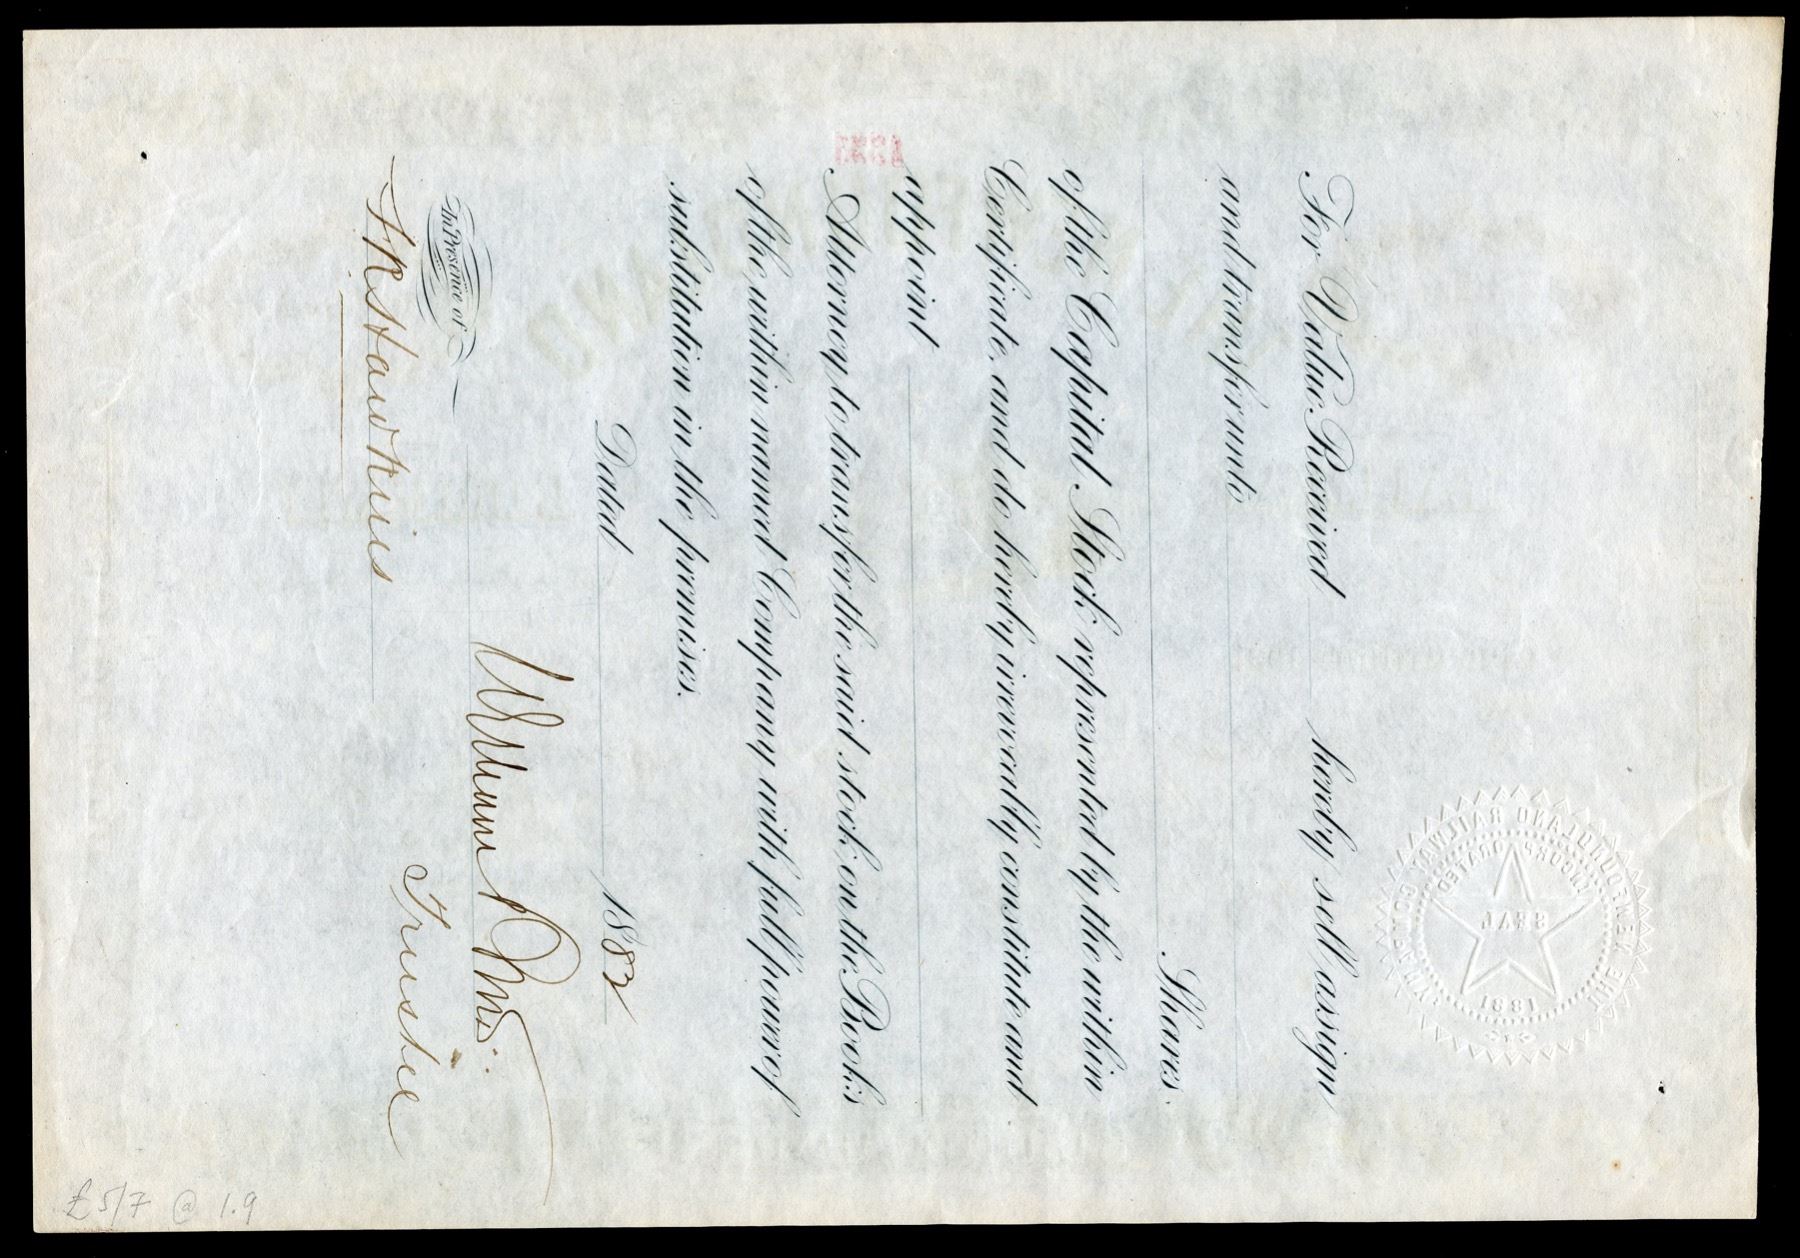 For Value Received hereby sell, assign
and transfer unto
Shares
of the Capital Stock represented by the within
Certificate, and do hereby irrevocably constitute and
appoint
Attorney to transfer the said stock on the Books
of the within named Company with full power of
substitution in the premises.
Dated 1882
In Presence of
Trustee
THE NEWFOUNDLAND RAILWAY COMPANY
INCORPORATED
SEAL
1881
£5/7 @ 1.9